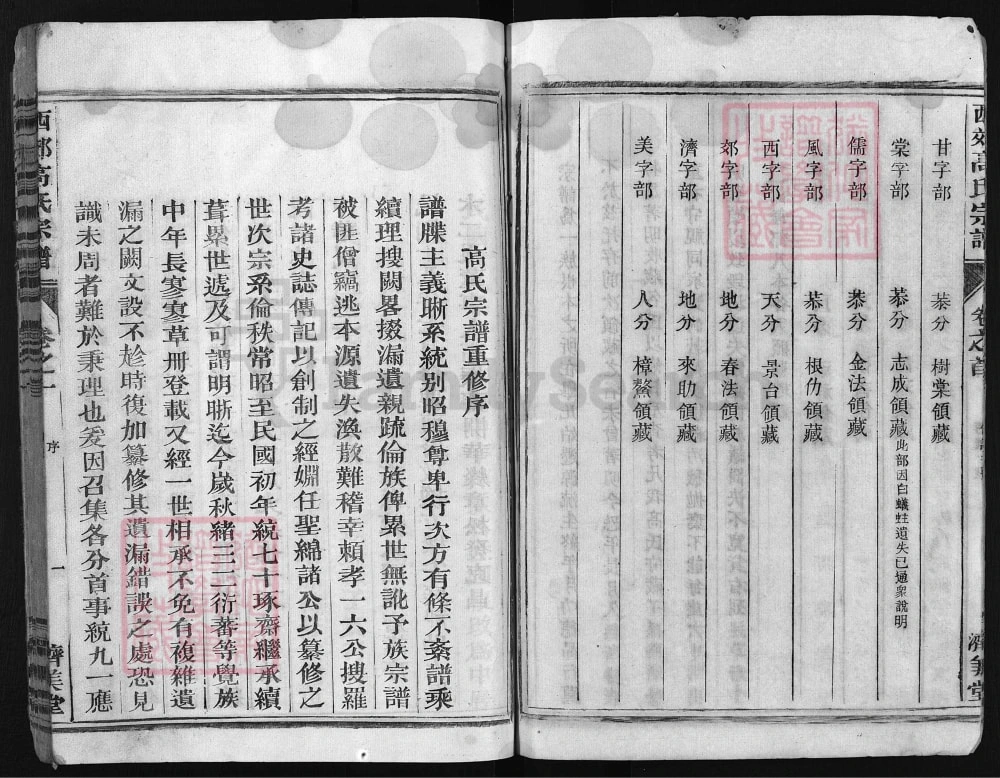 西郊高氏宗譜
卷之首
濟美堂
甘字部 恭分 樹棠領藏
棠字部 恭分 志成領藏 此部因白蟻蛀遺失已通衆說明
儒字部 恭分 金法領藏
風字部 恭分 根仂領藏
西字部 天分 景台領藏
郊字部 地分 春法領藏
濟字部 地分 來助領藏
美字部 人分 樟鰲領藏
高氏宗譜重修序
譜牒主義晰系統别昭穆尊卑行次方有條不紊譜乘
續理搜闕畧掇漏遺親疏倫族俾累世無訛予族宗譜
被匪僧竊逃本源遺失渙散難稽幸賴孝一六公搜羅
考諸史誌傳記以創制之經嫺任聖綿諸公以纂修之
世次宗系倫秩常昭至民國初年統七十琢齋繼承續
葺累世遞及可謂明晰迄今歲秋緒三三衍蕃等覺族
中年長寥寥草冊登載又經一世相承不免有複雜遺
漏之闕文設不趁時復加纂修其遺漏錯誤之處恐見
識未周者難於秉理也爰因召集各分首事統九一應
西郊高氏宗譜
卷之一
序
一
濟美堂